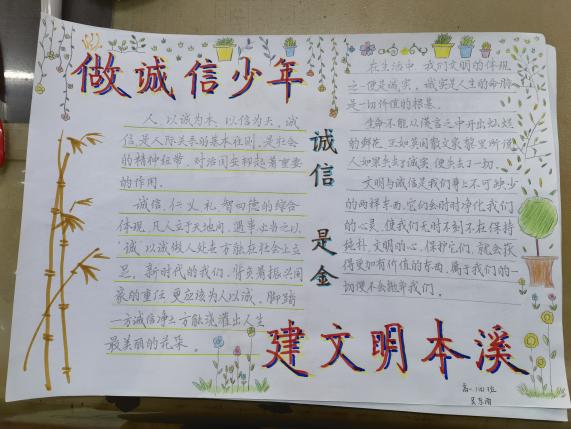 做诚信少年
人,以诚为本,以信为天。诚
信,是人际关系的基本准则,是社会
的精神纽带,对治国安邦起着重要
的作用。
诚信,仁、义、礼、智四德的综合
体现,凡人立于天地间,遇事出当之以
'诚',以诚做人处世方能在社会上立
足。新时代的我们,背负着振兴国
家的重任,更应该为人以诚。脚踏
一方诚信净土方能浇灌出人生
最美丽的花朵。
诚信是金
在生活中,我们文明的体现
之一便是诚实。诚实是人生的命脉,
是一切价值的根基。
生命不能从谎言之中开出灿烂
的鲜花,正如英国散文家黎里所说:
人如果失去了诚实,便失去了一切。
文明与诚信是我们身上不可缺少
的两样东西,它们会时时净化我们
的心灵,使我们无时不刻不在保持
纯朴、文明的心,保护它们,就会获
得更加有价值的东西,属于我们的一
切便不会抛弃我们。
建文明本溪
高一